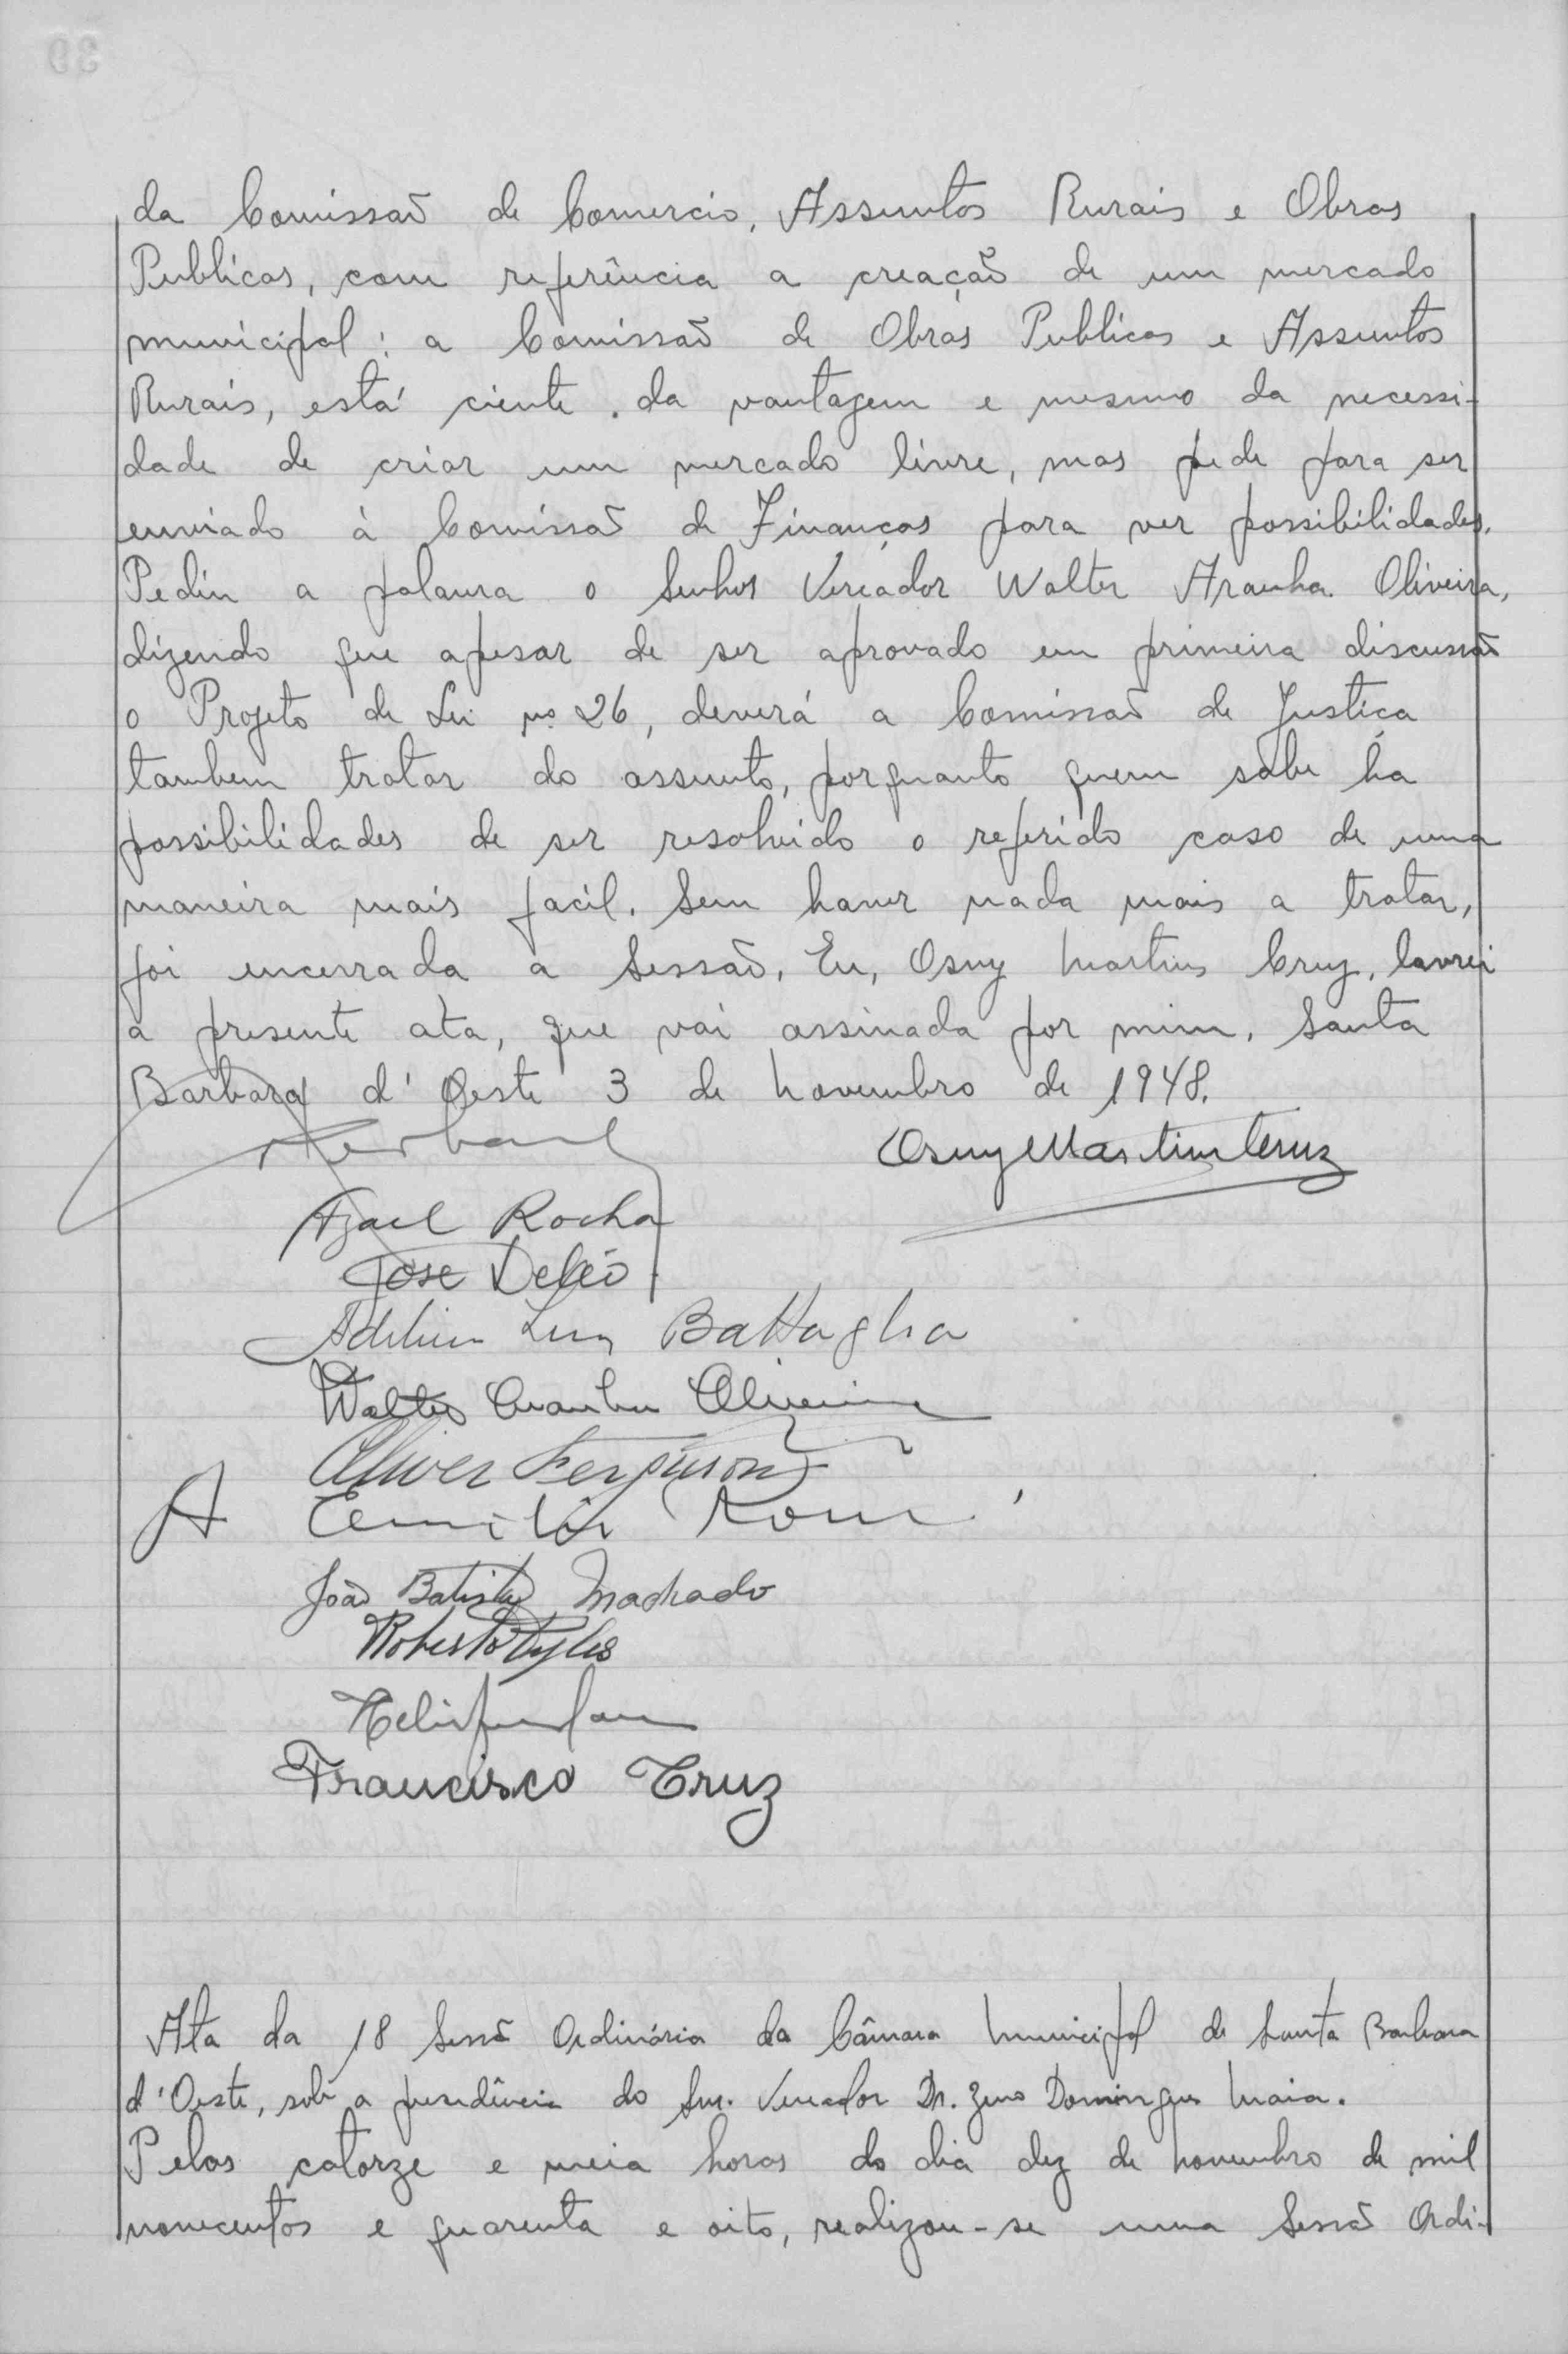 da Comissão de Comercio, Assuntos Rurais e Obras
Publicas, com referência a creação de um mercado
municipal: a Comissão de Obras Publicas e Assuntos
Rurais, está ciente da vantagem e mesmo da necessi-
dade de criar um mercado livre, mas pede para ser
enviado à Comissão de Finanças para ver possibilidades.
Pediu a palavra o Senhor Vereador Walter Aranha Oliveira,
dizendo que apesar de ser aprovado em primeira discussão
o Projeto de Lei nº 26, deverá a Comissão de Justiça
tambem tratar do assunto, porquanto quem sabe ha
possibilidades de ser resolvido o referido caso de uma
maneira mais facil. Sem haver nada mais a tratar,
foi encerrada a Sessão. Eu, Osny Martins Cruz, lavrei
a presente ata, que vai assinada por mim. Santa
Barbara d'Oeste 3 de Novembro de 1948.
Osny Martins Cruz
Azael Rocha
José Deléo
Luiz Battaglia
Walter Aranha Oliveira
Oliver Ferguson
A Emilio Romi
João Batista Machado
Roberto
Francisco Cruz
Ata da 18 Sessão Ordinária da Câmara Municipal de Santa Barbara
d'Oeste, sob a presidência do Snr. Vereador Dr. Zeno Domingues Maia.
Pelas catorze e meia horas do dia dez de Novembro de mil
novecentos e quarenta e oito, realizou-se uma Sessão Ordi-